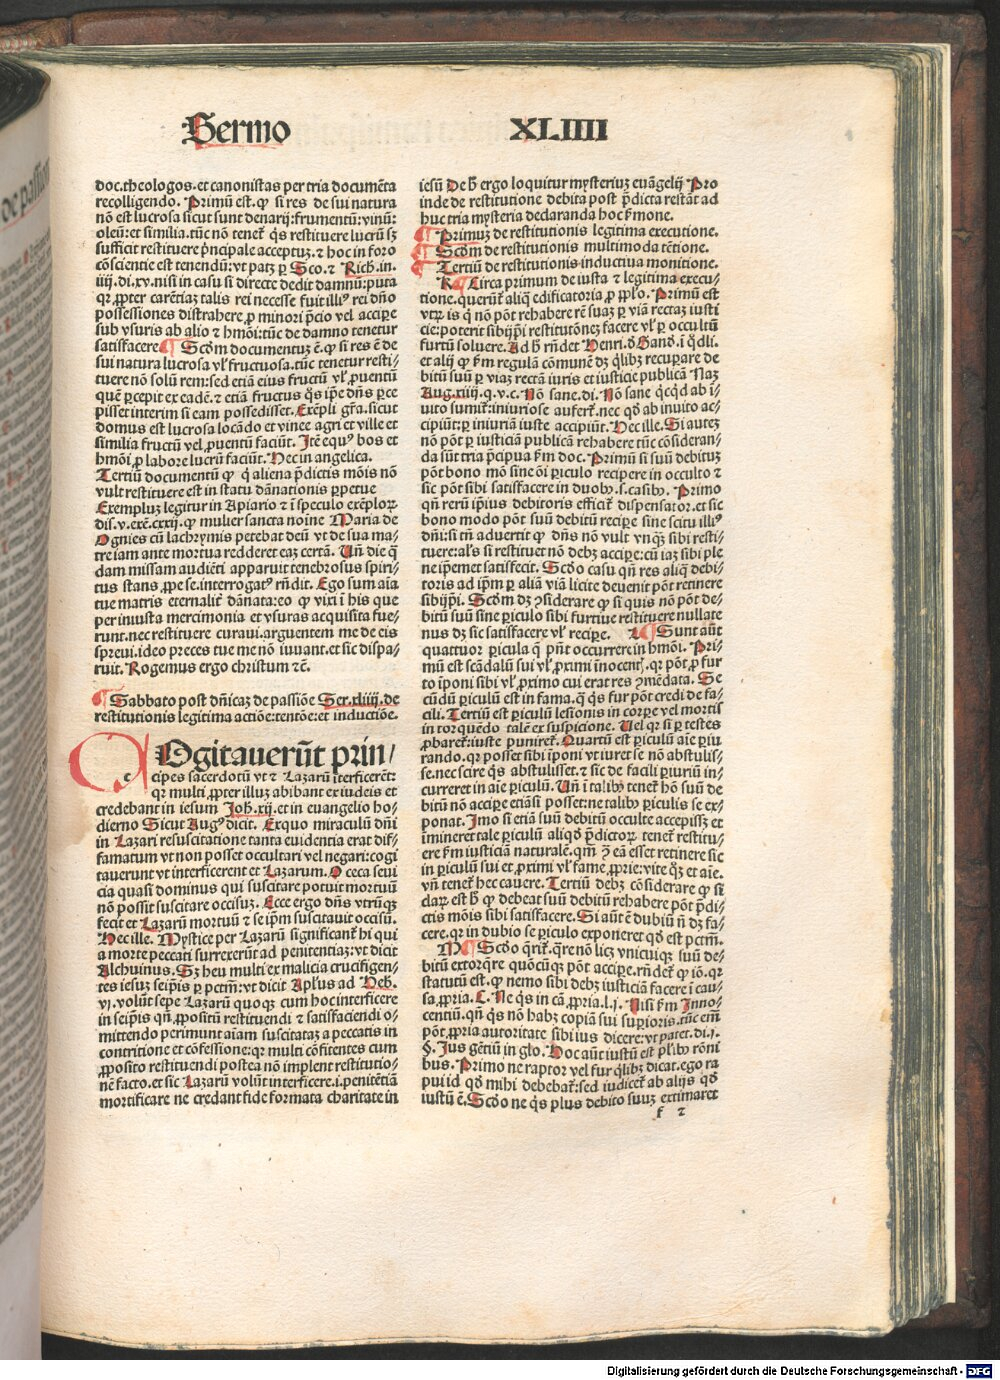 Sermo XLIIII
doc.theologos.et canonistas per tria documēta
recolligendo. Primū est.ꝙ si res de sui natura
nō est lucrosa sicut sunt denarij:frumentū:vinū:
oleū:et similia.tūc nō tenet᷑ q̄s restituere lucrū sꝫ
sufficit restituere p̄ncipale acceptuꝫ.⁊ hoc in foro
cōscientie est tenendū:vt patꝫ ꝑ Sco.⁊ Rich.in.
iiij.di.xv.nisi in casu si directe dedit damnū:puta
qꝛ ꝓpter carētiaꝫ talis rei necesse fuit illiꝰ rei dn̄o
possessiones distrahere ꝓ minori p̄cio vel accipe
sub vsuris ab alio ⁊ hmōi:tūc de damno tenetur
satisfacere ¶ Scdm documentuꝫ ē.ꝙ si res ē de
sui natura lucrosa vl̓ fructuosa.tūc tenetur resti⸗
tuere nō solū rem:sed etiā eius fructū vl̓ ꝓuentū
quē ꝑcepit ex eadē.⁊ etiā fructus q̄s ip̄e dn̄s ꝑce
pisset interim si eam possedisset. Exēpli gr̄a.sicut
domus est lucrosa locādo et vinee agri et ville et
similia fructū vel ꝓuentū faciūt. Itē equꝰ bos et
hmōi ꝓ labore lucrū faciūt. Hec in angelica.
Tertiū documentū ꝙ q̇ aliena p̄dictis mōis nō
vult restituere est in statu dānationis ꝑpetue
Exempluꝫ legitur in Apiario ⁊ ī speculo exēploꝝ
dis.v.exē.cxxij.ꝙ mulier sancta noīne Maria de
Ognies cū lachrymis petebat deū vt de sua ma⸗
tre iam ante mortua redderet eaꝫ certā. Vn̄ die q̄
dam missam audiēti apparuit tenebrosus spiri⸗
tus stans ꝓpe se.interrogatꝰ rn̄dit. Ego sum aīa
tue matris eternalit᷑ dānata:eo ꝙ vixi ī his que
per iniusta mercimonia et vsuras acquisita fue⸗
runt.nec restituere curaui.arguentem me de eis
spreui.ideo preces tue me nō iuuant.et sic dispa⸗
ruit. Rogemus ergo christum ⁊c̄.
¶ Sabbato post dn̄icaꝫ de passiōe Ser.xliiij.de
restitutionis legitima actiōe:tentōe:et inductiōe.
COgitauerūt prin/
cipes sacerdotū vt ⁊ Lazarū īterficerēt:
qꝛ multi ꝓpter illuꝫ abibant ex iudeis et
credebant in iesum Joh.xij.et in euangelio ho⸗
dierno Sicut Augꝰ dicit. Exquo miraculū dn̄i
in Lazari resuscitatione tanta euidentia erat dif⸗
famatum vt non posset occultari vel negari:cogi
tauerunt vt interficerent et Lazarum. O ceca seui
cia quasi dominus qui suscitare potuit mortuū
nō possit suscitare occisuꝫ. Ecce ergo dn̄s vtrūqꝫ
fecit et Lazarū mortuū ⁊ se ip̄m suscitauit occisū.
Hec ille. Mystice per Lazarū significant᷑ hi qui
a morte peccati surrexerūt ad penitentiaꝫ:vt dicit
Alchuinus. Sꝫ heu multi ex malicia crucifigen⸗
tes iesuꝫ seip̄is ꝑ pctm̄:vt dicit Apl̓us ad Heb.
vj.volūt sepe Lazarū quoqꝫ cum hoc interficere
in seip̄is qn̄ ꝓpositū restituendi ⁊ satisfaciendi o⸗
mittendo perimunt aīam suscitataꝫ a peccatis in
contritione et cōfessione:qꝛ multi cōfitentes cum
ꝓposito restituendi postea nō implent restitutio⸗
nē facto.et sic Lazarū volūt interficere.i.penitētiā
mortificare ne credant fide formata charitate in
iesū De h̄ ergo loquitur mysteriuꝫ euāgelij Pro
inde de restitutione debita post p̄dicta restāt ad
huc tria mysteria declaranda hoc ẜmone.
¶ Primuꝫ de restitutionis legitima executione.
¶ Scdm̄ de restitutionis multimoda tētione.
¶ Tertiū de restitutionis inductiua monitione.
K ¶ Circa primum de iusta ⁊ legitima execu⸗
tione.querūt᷑ aliq̄ edificatoria ꝓ ppl̓o. Primū est
vtꝝ is q̇ nō pōt rehabere rē suaꝫ ꝑ viā rectaꝫ iusti
cie:poterit sibijp̄i restitutōnēꝫ facere vl̓ ꝑ occultū
furtū soluere. Ad h̄ rn̄det Henri.ð Gand.ī q̇dli.
et alij ꝙ ẜm regulā cōmunē dꝫ q̇libꝫ recuꝑare de
bitū suū ꝑ viaꝫ rectā iuris et iusticie publicā Naꝫ
Aug.xiiij.q.v.c. Nō sane.di. Nō sane q̇cq̇d ab ī⸗
uito sumit᷑:iniuriose aufert᷑.nec qð ab inuito ac⸗
cipiūt:ꝑ iniuriā iuste accipiūt. Hec ille. Si autez
nō pōt ꝑ iusticiā publicā rehabere tūc cōsideran⸗
da sūt tria p̄cipua ẜm doc. Primū si suū debituꝫ
pōt bono mō sine oī ꝑiculo recipere in occulto ⁊
sic pōt sibi satisfacere in duobꝰ.s.casibꝰ. Primo
qn̄ rerū ip̄ius debitoris efficit᷑ dispensator.et sic
bono modo pōt suū debitū recipe sine scitu illiꝰ
dn̄i:si tn̄ aduertit ꝙ dn̄s nō vult vnꝗꝫ sibi resti⸗
tuere:al̓s si restituet nō debꝫ accipe:cū iaꝫ sibi ple
ne ip̄emet satisfecit. Scðo casu qn̄ res aliq̄ debi⸗
toris ad ip̄m ꝑ aliā viā licite deuenit pōt retinere
sibijp̄i. Scdm dꝫ ꝯsiderare ꝙ si quis nō pōt de⸗
bitū suū sine ꝑiculo sibi furtiue restituere nullate
nus dꝫ sic satisfacere vl̓ recipe. L ¶ Sunt aūt
quattuor ꝑicula q̄ pn̄t occurrere in hmōi. Pri⸗
mū est scādalū sui vl̓ ꝓximi īnocentꝭ.qꝛ pōt ꝓ fur
to īponi sibi vl̓ ꝓximo cui erat res ꝯmēdata. Se
cūdū ꝑiculū est in fama.q̇ dꝰ fur pōt credi de fa⸗
cili. Tertiū est ꝑiculū lesionis in corꝑe vel mortis
in torquēdo talē ex suspicione. Uel qꝛ si ꝑ testes
ꝓbaret᷑:iuste puniret᷑. Quartū est ꝑiculū aīe ꝑiu
rando.qꝛ posset sibi īponi vt iuret se nō abstulis⸗
se.nec scire q̄s abstulisset.⁊ sic de facili ꝑiuriū in⸗
curreret in aīe ꝑiculū. Vn̄ ī talibꝰ tenet᷑ hō suū de
bitū nō accipe etiāsi posset:ne talibꝰ ꝑiculis se ex⸗
ponat. Imo si etiā suū debitū occulte accepissꝫ et
imineret tale ꝑiculū aliqð p̄dictoꝝ tenet᷑ restitu⸗
ere ẜm iusticiā naturalē.qm̄ ꝯ̄ eā esset retinere sic
in ꝑiculū sui et ꝓximi vl̓ fame.ꝓprie:vite qꝫ et aīe.
vn̄ tenet᷑ hec cauere. Tertiū debꝫ cōsiderare ꝙ si
daꝝ est h̄ ꝙ debeat suū debitū rehabere pōt p̄di⸗
ctis mōis sibi satisfacere. Si aūt ē dubiū n̄ dꝫ fa⸗
cere.qꝛ in dubio se ꝑiculo exponeret qð est pctm̄.
M ¶ Scðo q̄rit᷑.q̄re nō licꝫ vnicuiqꝫ suū de⸗
bitū extorq̄re quōcūqꝫ pōt accipe.rn̄det᷑ ꝙ iō.qꝛ
statutū est.ꝙ nemo sibi debꝫ iusticiā facere ī cau⸗
sa ꝓpria. C. Ne q̄s in cā ꝓpria.l.j. Nisi ẜm Inno⸗
centiū.qn̄ q̄s nō habꝫ copiā sui suꝑioris.tūc em̄
pōt ꝓpria autoritate sibi ius dicere:vt patet.di.j.
§. Jus gētiū in glo. Hoc aūt iustū est pl̓ibꝰ rōni
bus. Primo ne raptor vel fur q̇libꝫ dicat.ego ra
pui id qð mihi debebat᷑:sed iudicet᷑ ab alijs qð
iustū ē. Scðo ne q̄s plus debito suuꝫ extimaret
f 2
Digitalisierung gefördert durch die Deutsche Forschungsgemeinschaft - DFG